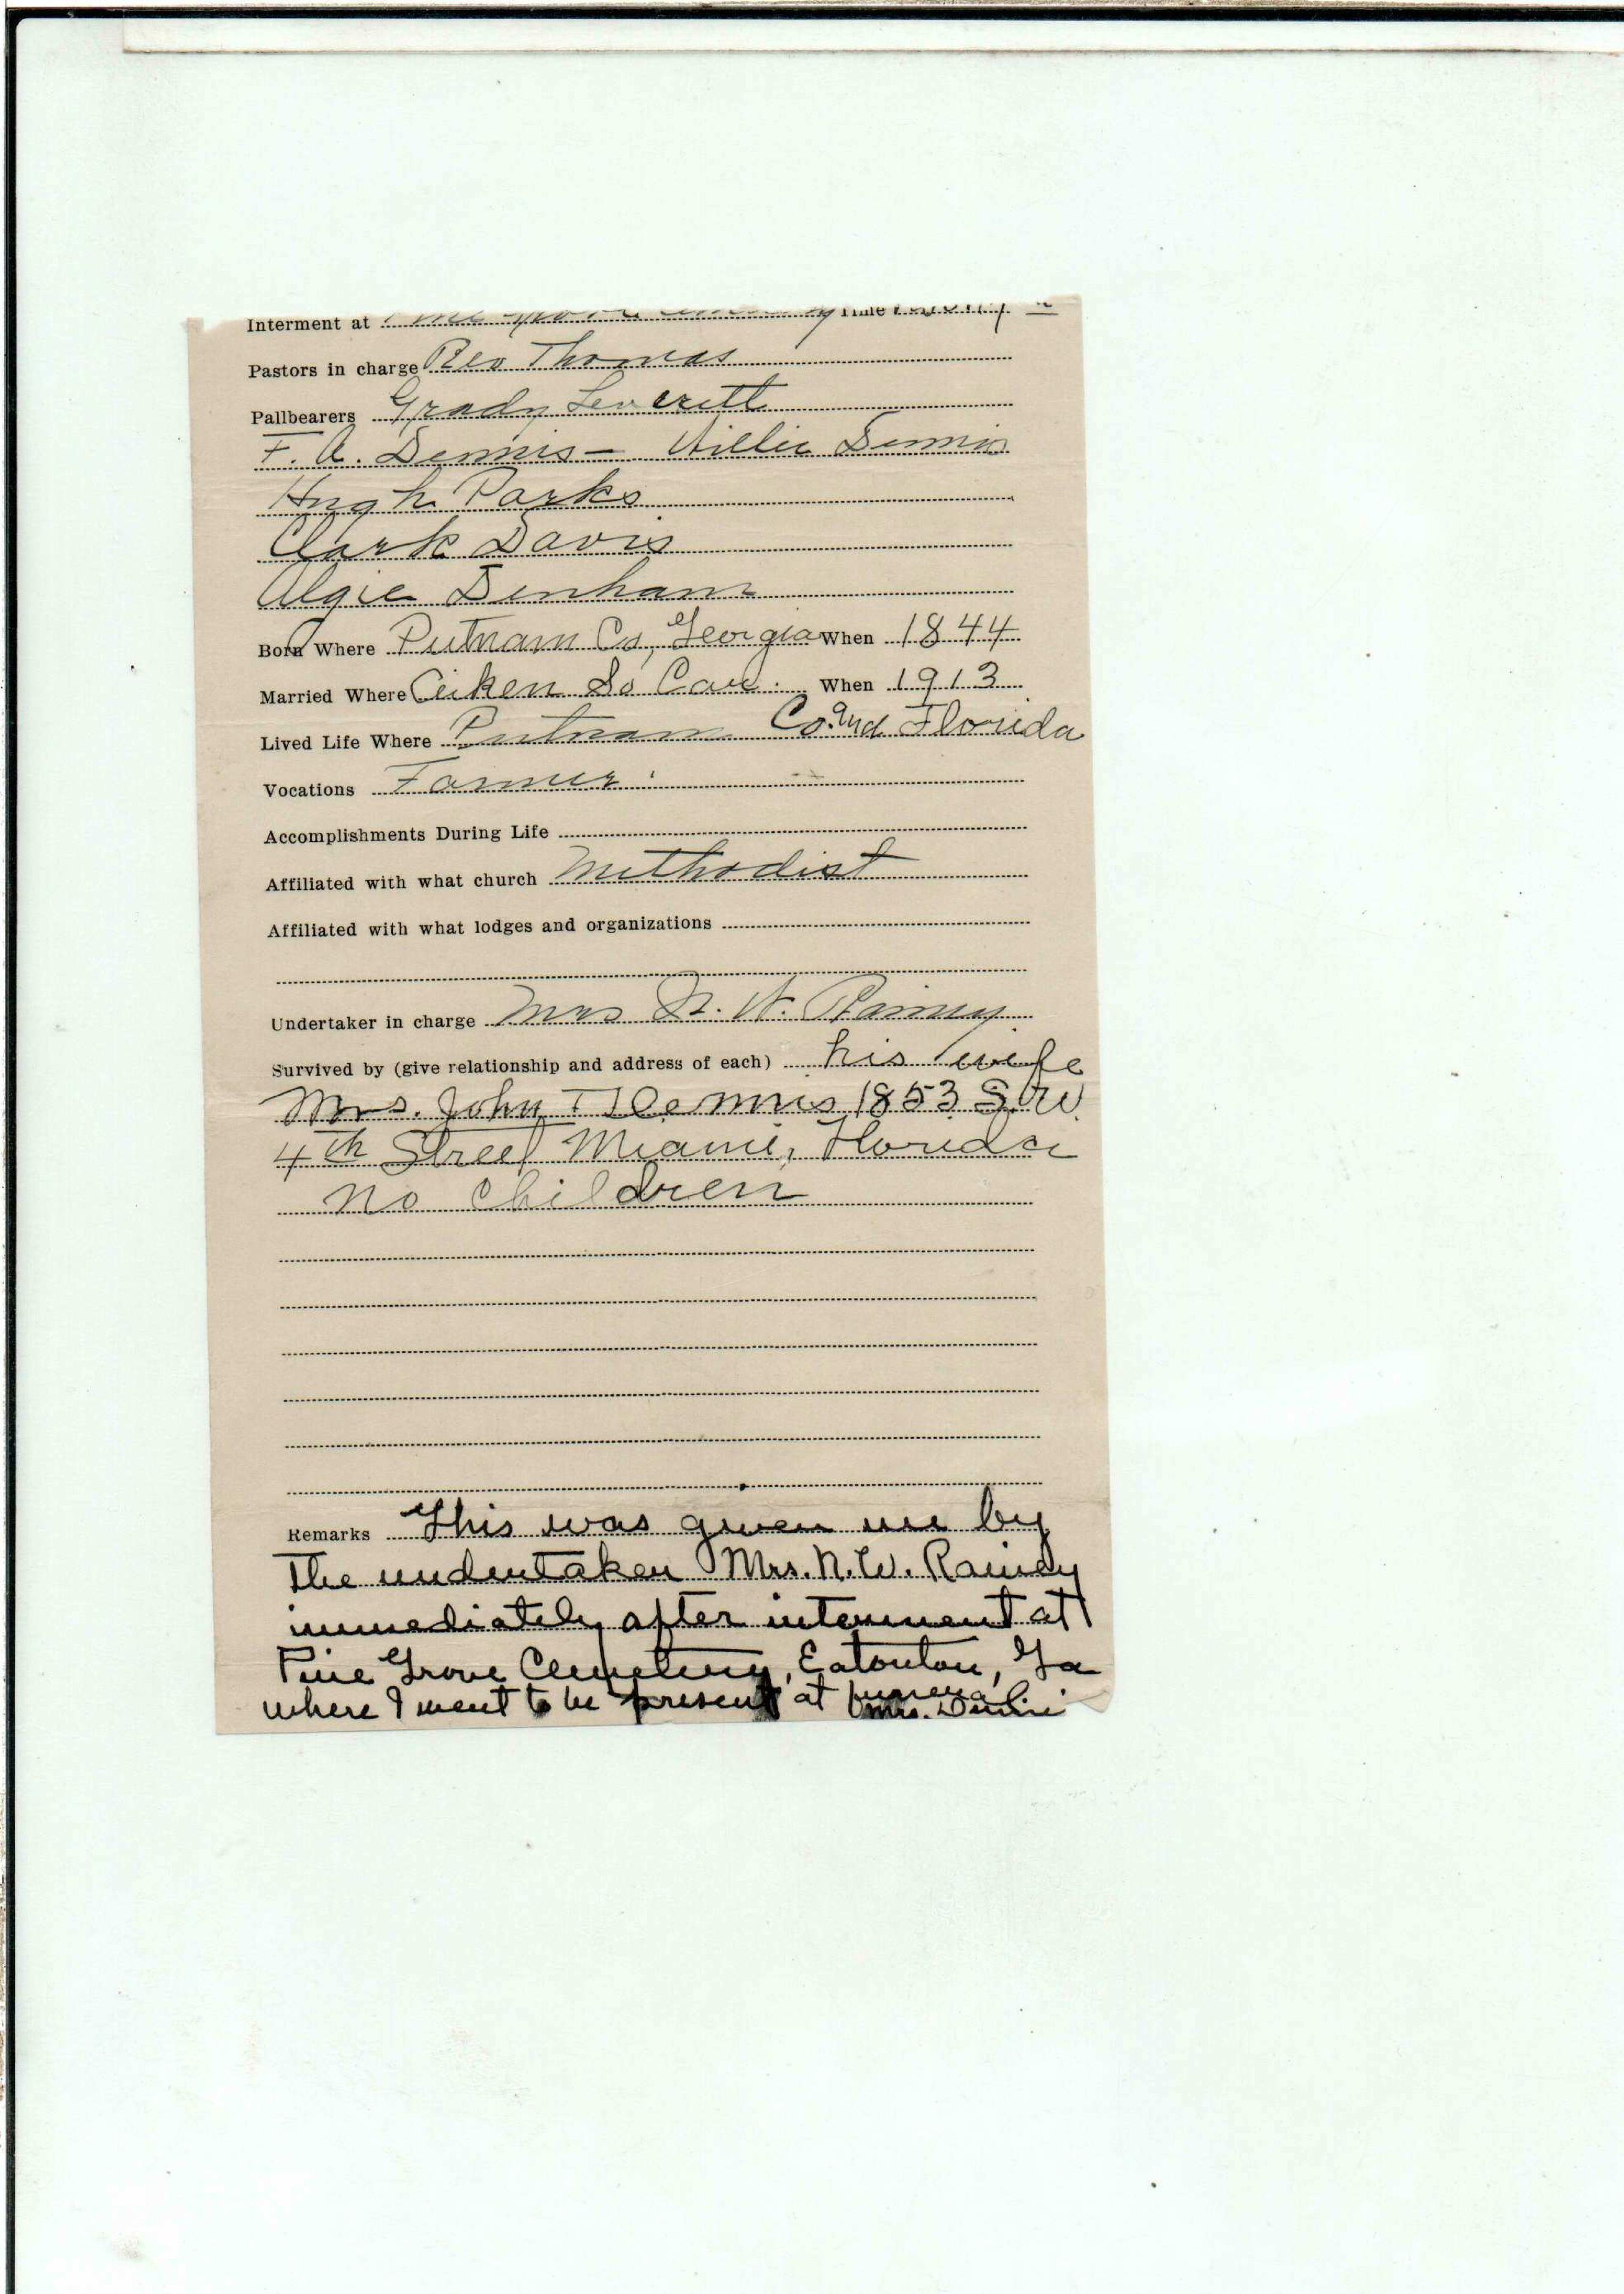 Interment at Pine Grove Cemetery Time
Pastors in charge Rev Thomas
Pallbearers Grady Leveritt
F. A. Dennis - Willie Dennis
Hugh Parks
Clark Davis
Algie Denham
Born Where Putnam Co, Georgia When 1844
Married Where Aiken So Car. When 1913
Lived Life Where Putnam Co. and Florida
Vocations Farmer.
Accomplishments During Life
Affiliated with what church Methodist
Affiliated with what lodges and organizations
Undertaker in charge Mrs N. W. Rainey
Survived by (give relationship and address of each) his wife
Mrs. John T Dennis 1853 S.W.
4th Street Miami, Florida
no children
Remarks This was given me by
the undertaker Mrs. N. W. Rainey
immediately after interment at
Pine Grove Cemetery, Eatonton, Ga
where I went to be present at funeral
Mrs.